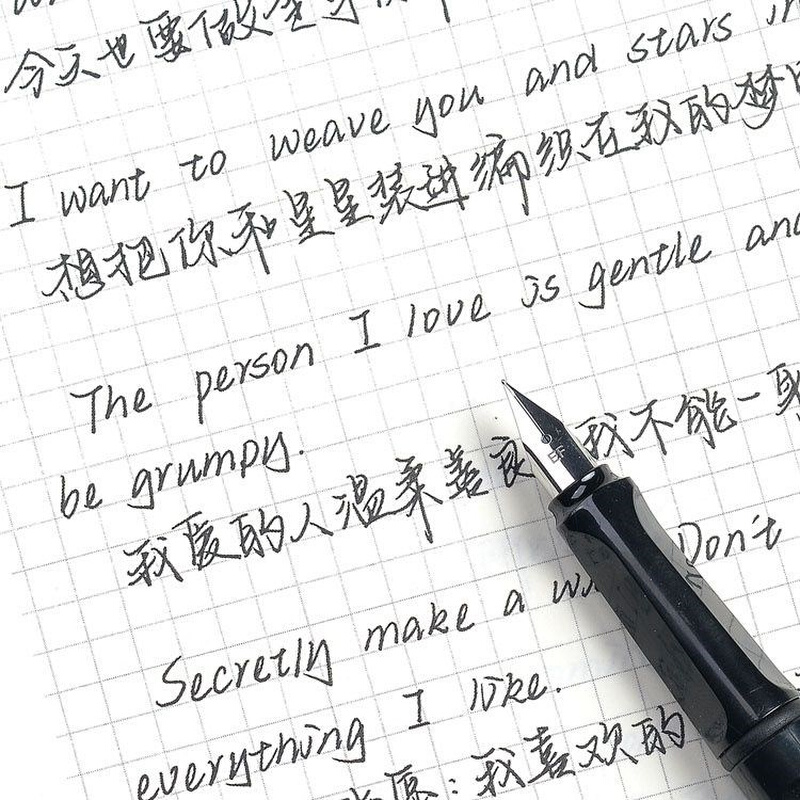 今天也要做
I want to weave you and stars in
想把你和星星装进编织在我的梦
The person I love is gentle and
be grumpy.
我爱的人温柔善良 我不能一
Secretly make a Don't
everything I like.
愿：我喜欢的